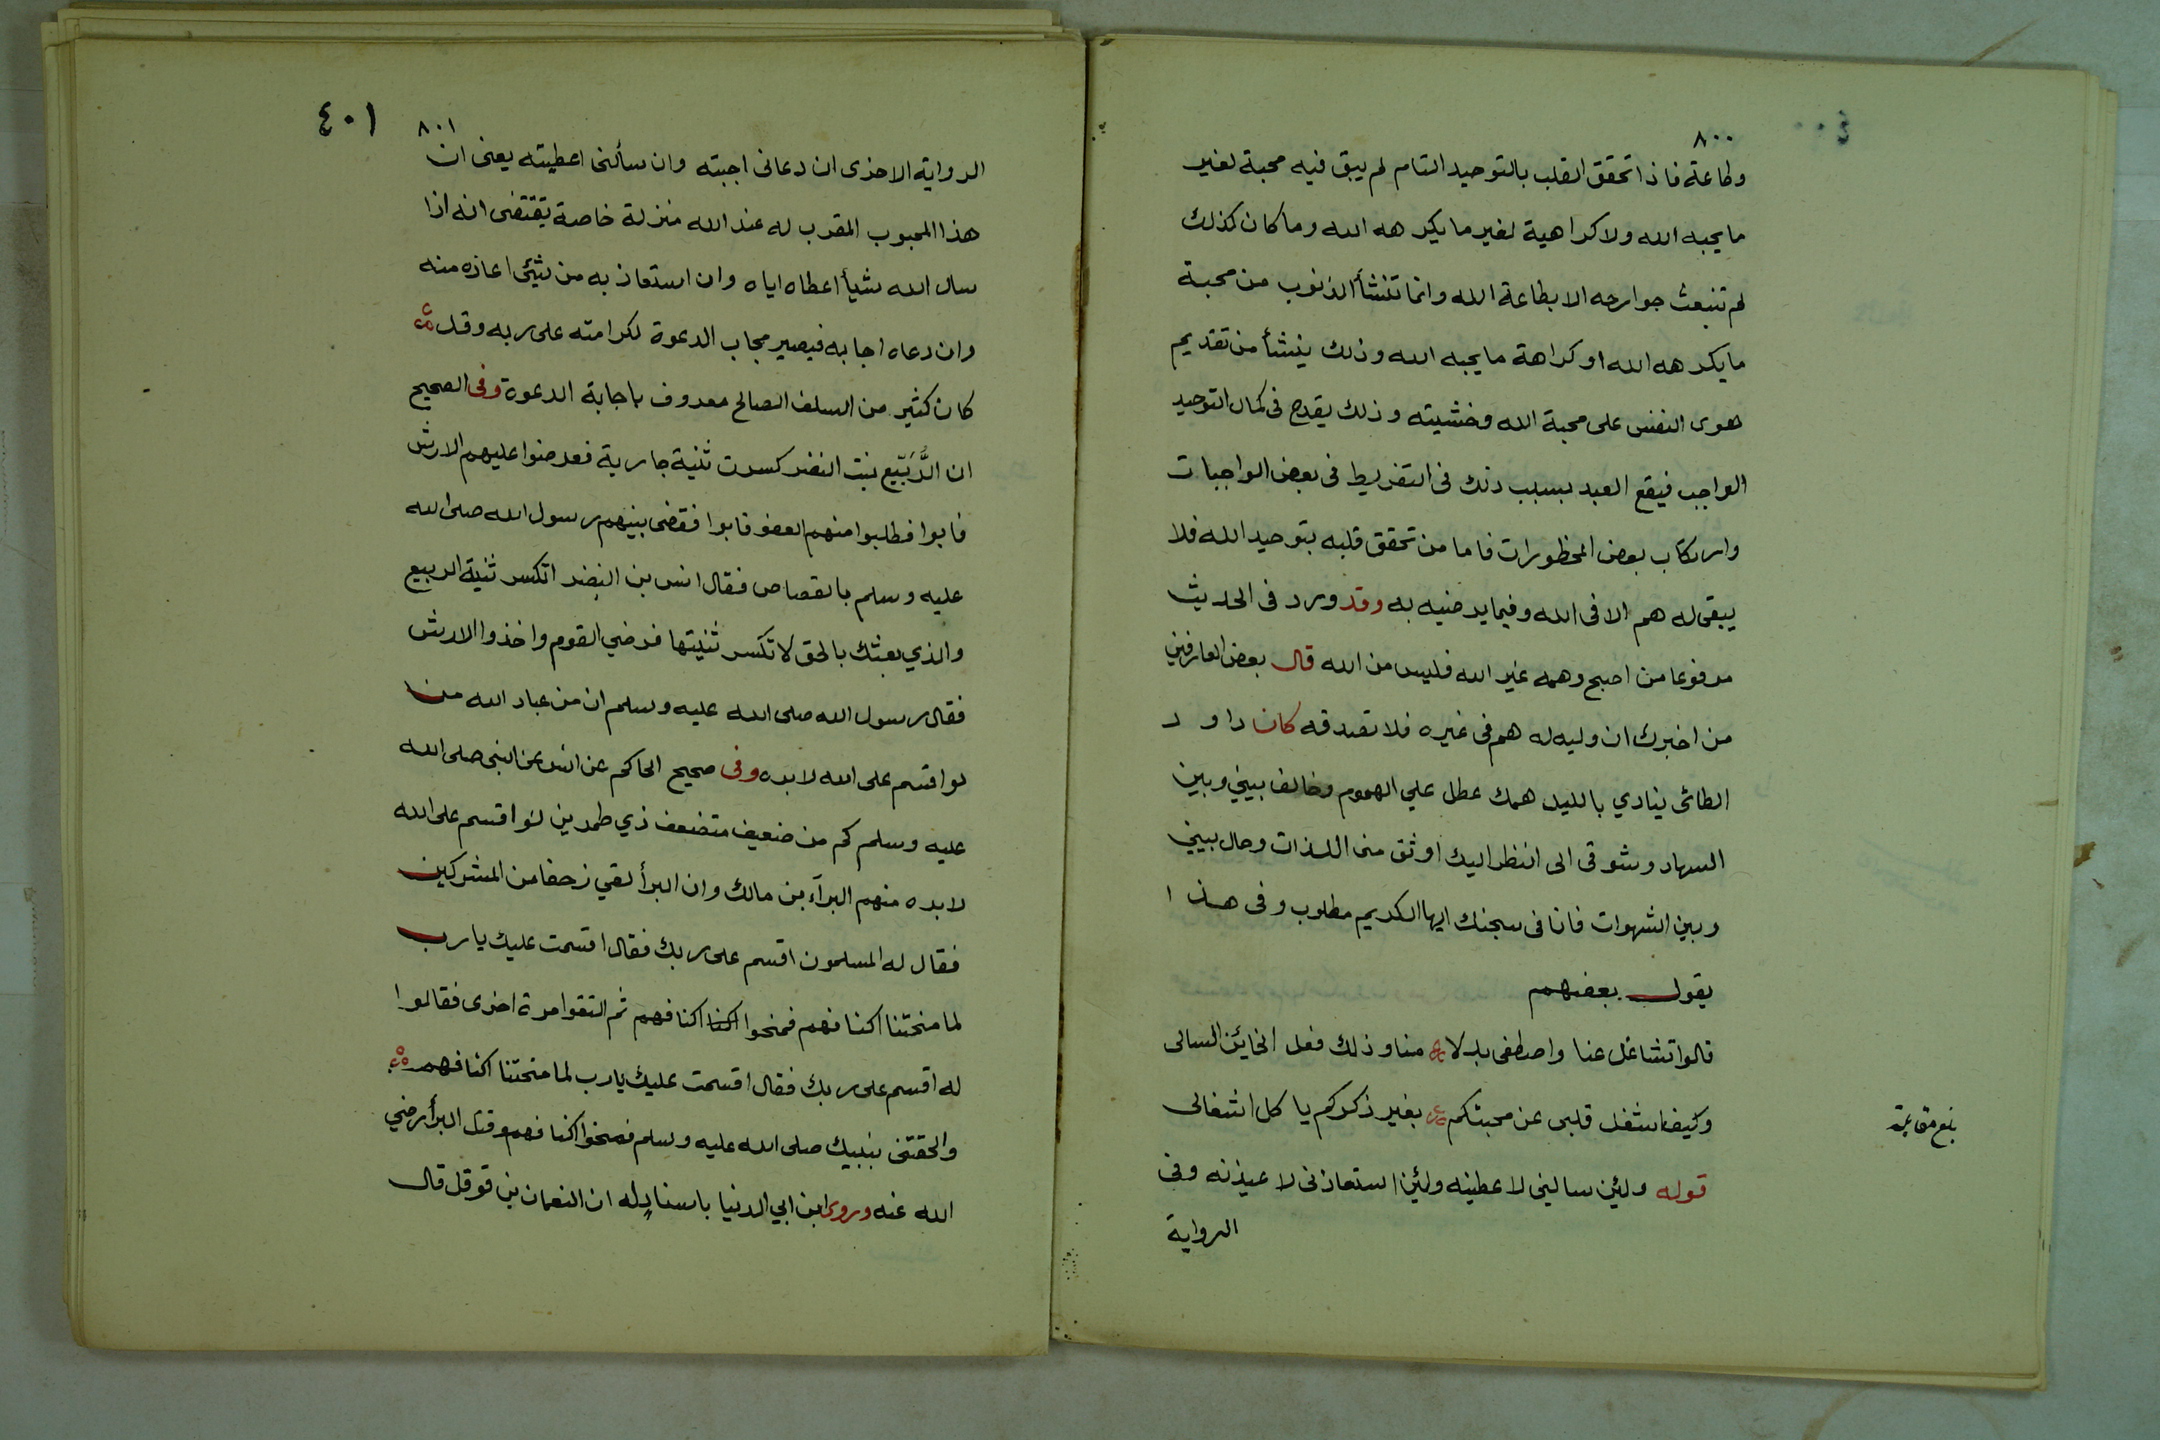 ٨٠٠
وطاعة فاذا تحقق القلب بالتوحيد التام لم يبق فيه محبة لغير
ما يحبه الله ولا كراهية لغير ما يكرهه الله وما كان كذلك
لم تنبعث جوارحه الا بطاعة الله وانما تنشأ الذنوب من محبة
ما يكرهه الله او كراهة ما يحبه الله وذلك ينشأ من تقديم
هوى النفس على محبة الله وخشيته وذلك يقدح في كمال التوحيد
الواجب فيقع العبد بسبب ذلك في التفريط في بعض الواجبات
وارتكاب بعض المحظورات فاما من تحقق قلبه بتوحيد الله فلا
يبقى له هم الا في الله وفيما يرضيه به وقد ورد في الحديث
مرفوعا من اصبح وهمه غير الله فليس من الله قال بعض العارفين
من اخبرك ان وليه له هم في غيره فلا تصدقه كان داود
الطائى ينادي بالليل همك عطل علي الهموم وخالف بيني وبين
السهاد وشوقى الى النظر اليك اوثق منى اللذات وحال بيني
وبين الشهوات فانا فى سجنك ايها الكريم مطلوب وفى هذا
يقول بعضهم
قالوا تشاغل عنا واصطفى بدلا منا وذلك فعل الخاين السالى
وكيف اشغل قلبى عن محبتكم بغير ذكركم يا كل اشغالى
بلغ مقابلة
قوله ولئن سالني لاعطينه ولئن استعاذنى لاعيذنه وفى
الرواية
٤٠١
٨٠١
الرواية الاخرى ان دعانى اجبته وان سألنى اعطيته يعنى ان
هذا المحبوب المقرب له عند الله منزلة خاصة تقتضى انه اذا
سال الله شيأ اعطاه اياه وان استعاذ به من شيئ اعاذه منه
وان دعاه اجابه فيصير مجاب الدعوة لكرامته على ربه وقد
كان كثير من السلف الصالح معروف باجابة الدعوة وفى الصحيح
ان الرُّبَيّع بنت النضر كسرت ثنية جارية فعرضوا عليهم الارش
فابوا فطلبوا منهم العفو فابوا فقضى بينهم رسول الله صلى الله
عليه وسلم بالقصاص فقال انس بن النضر اتكسر ثنية الربيع
والذي بعثك بالحق لا تكسر ثنيتها فرضي القوم واخذوا الارش
فقال رسول الله صلى الله عليه وسلم ان من عباد الله من
لو اقسم على الله لابره وفى صحيح الحاكم عن انس عن النبى صلى الله
عليه وسلم كم من ضعيف متضعف ذي طمرين لو اقسم على الله
لابره منهم البرآء بن مالك وان البرأ لقي زحفا من المشركين
فقال له المسلمون اقسم على ربك فقال اقسمت عليك يا رب
لما منحتنا اكنافهم فمنحوا اكنا اكنافهم ثم التقوا مرة اخرى فقالوا
له اقسم على ربك فقال اقسمت عليك يا رب لما منحتنا اكنافهم
والحقتنى بنبيك صلى الله عليه وسلم فمنحوا اكنافهم وقتل البرأ رضي
الله عنه وروى ابن ابي الدنيا باسناد له ان النعمان بن قوقل قال